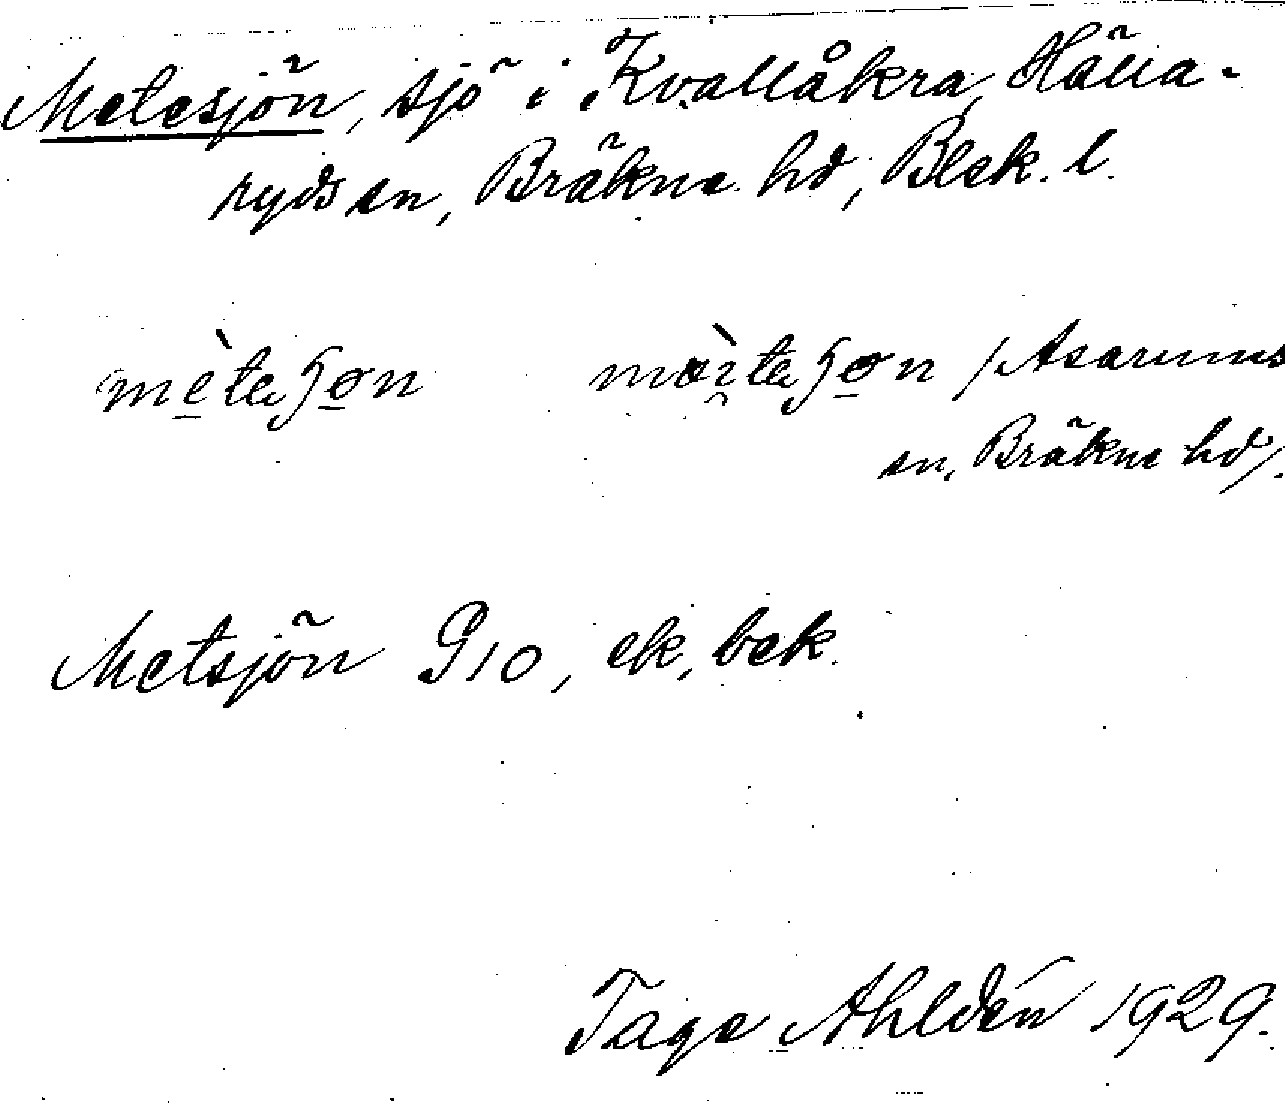 Metesjön, sjö i Kvallåkra, Hälla-
ryds sn, Bräkne hd, Blek. l.
mètaʃøn mæ̀itaʃøn /Asarums
sn, Bräkne hd/.
Metsjön G10, ek, bek.
Tage Ahldén 1929.